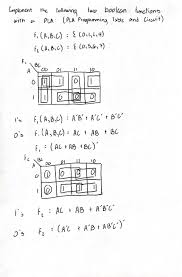 Implement the following two boolean functions
with a PLA. (PLA Programming Table and Circuit)
F₁(A,B,C) = Σ(0,1,2,4)
F₂(A,B,C) = Σ(0,5,6,7)
F₁
BC
A 00 01 11 10
0 1 1 0 1
1 1 0 0 0
1's F₁(A,B,C) = A'B' + A'C' + B'C'
0's F₁(A,B,C) = AC + AB + BC
F₁ = (AC + AB + BC)'
F₂ BC
A 00 01 11 10
0 1 0 0 0
1 0 1 1 1
1's F₂ = AC + AB + A'B'C'
0's F₂ = (A'C + A'B + AB'C')'